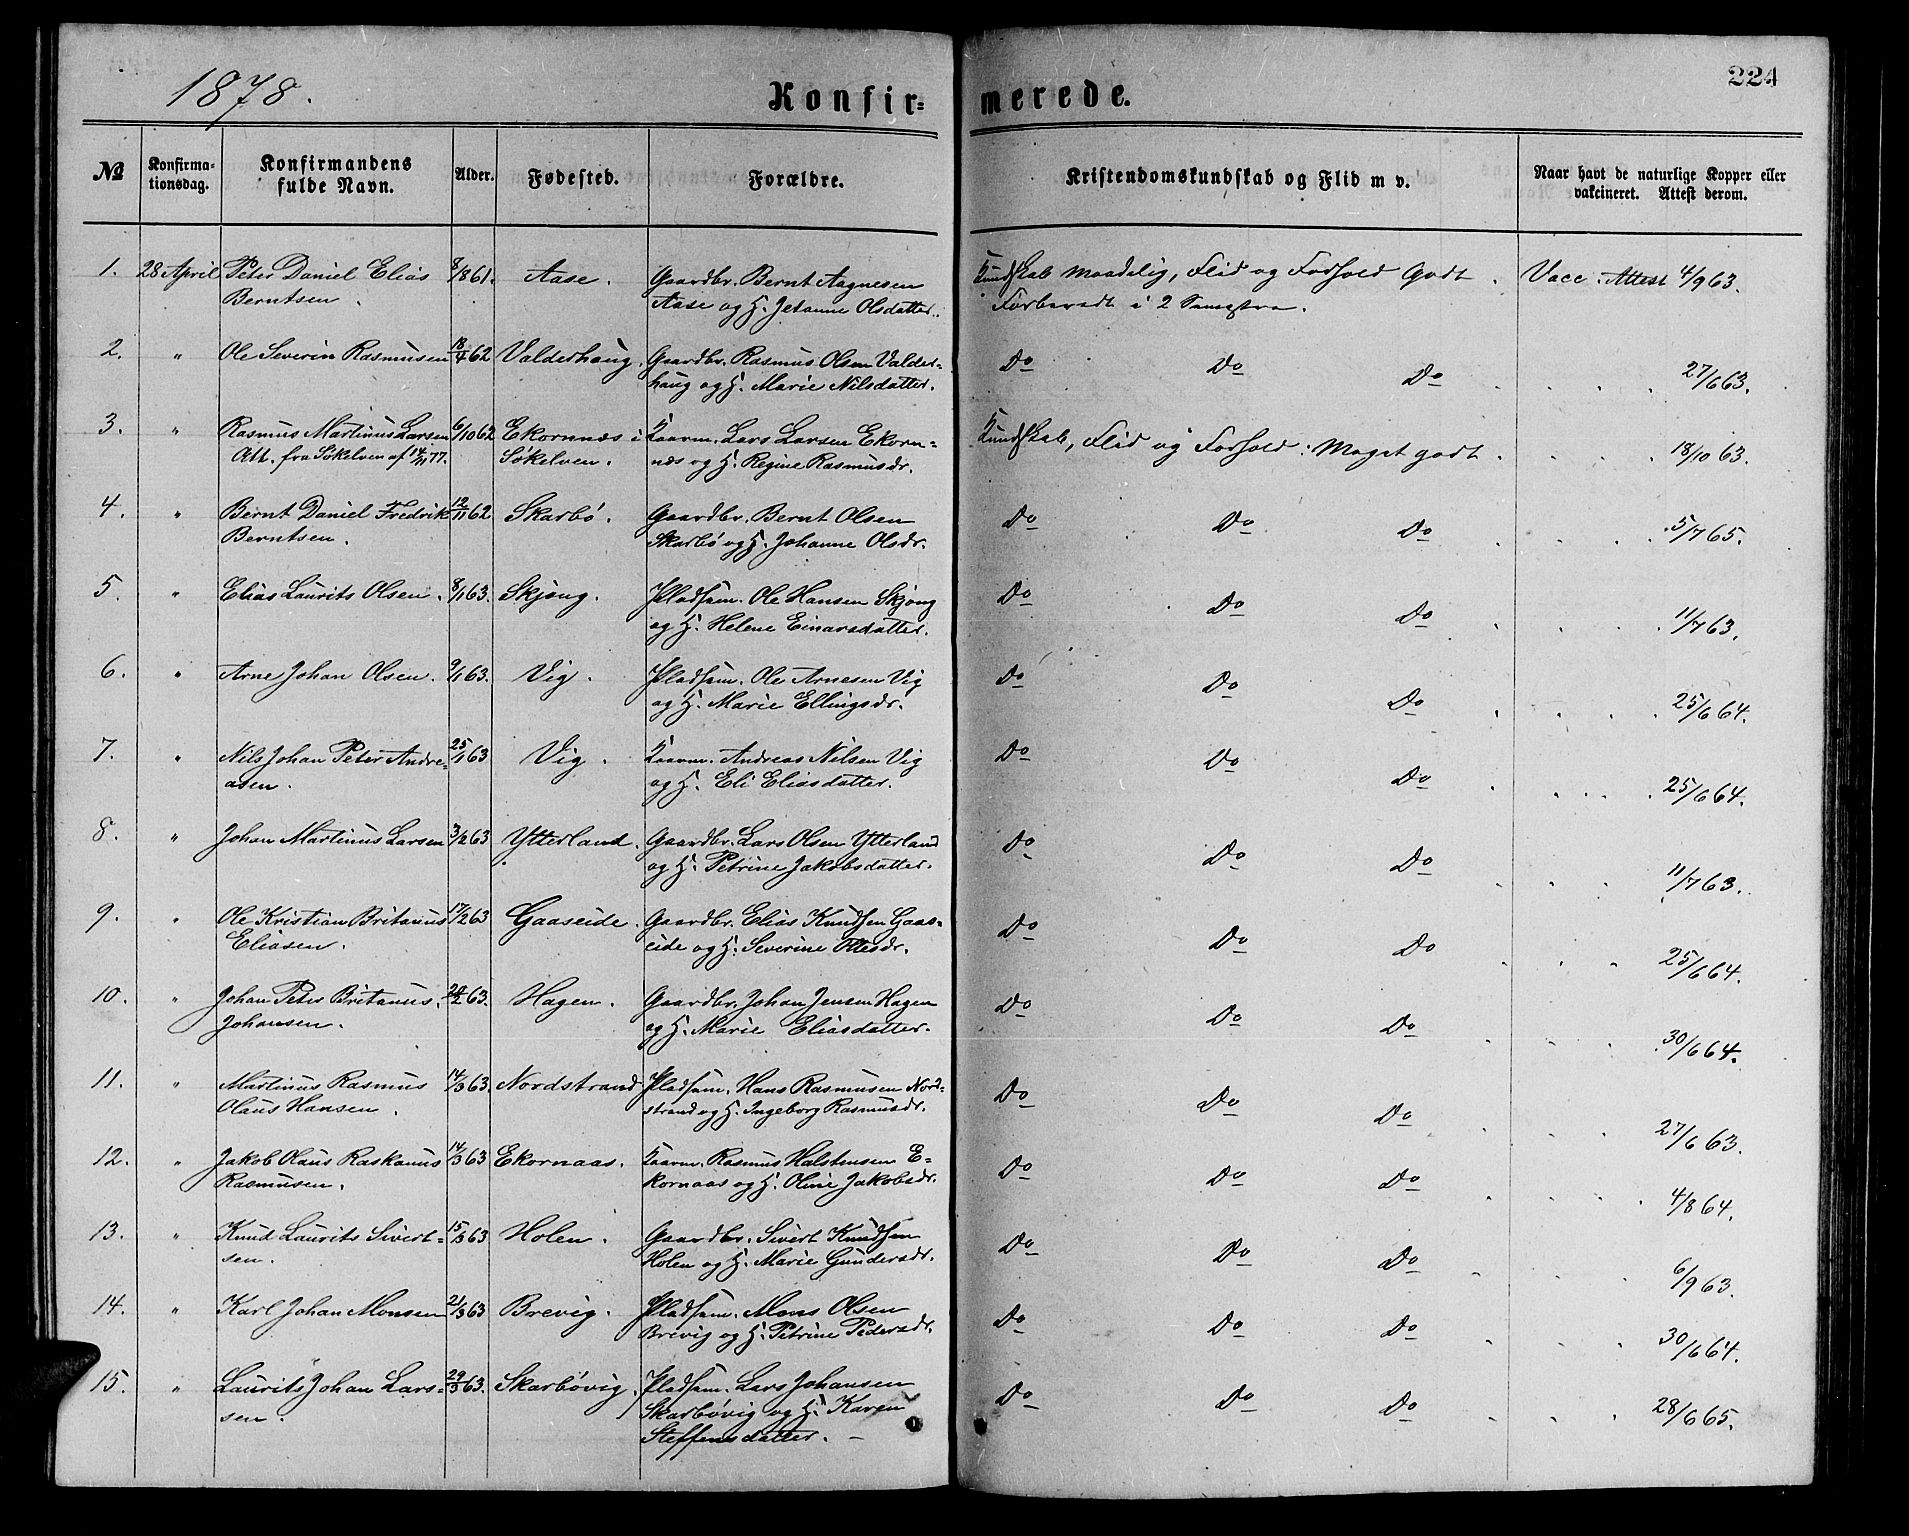 1878.
Konfir=
merede.
224
№
Konfirma-
tionsdag.
Konfirmandens
fulde Navn.
Alder.
Fødested.
Forældre.
Kristendomskundskab og Flid m v.
Naar havt de naturlige Kopper eller
vakcineret. Attest derom.
1. 28 April Peter Daniel Elias 8/8 61. Aase. Gaardbr. Bernt Aagnesen Kundskab maadelig, Flid og Forhold Godt. Vacc. Attest 4/9 63.
Berntsen. Aase og H. Jetanne Olsdatter. Forberedt i 2 Semestre.
2. " Ole Severin Rasmusen 18/4 62 Valderhaug. Gaardbr. Rasmus Olsen Valder- Do Do Do 27/6 63.
haug og H. Marie Nilsdatter.
3. " Rasmus Martinus Larsen 6/10 62 Ekornnæs i Kaarm. Lars Larsen Ekorn= Kundskab, Flid og Forhold: Meget godt. 18/10 63.
Att. fra Søkelven af 14/11 77. Søkelven. næs og H. Regine Rasmusdr.
4. " Bernt Daniel Fredrik 12/11 62 Skarbø. Gaardbr. Bernt Olsen Do Do Do 5/7 65.
Berntsen. Skarbø og H. Johanne Olsdr.
5. " Elias Laurits Olsen. 8/1 63. Skjong. Pladsm. Ole Hansen Skjong Do Do Do 11/7 63.
og H. Helene Einarsdatter.
6. " Arne Johan Olsen. 9/1 63. Vig. Pladsm. Ole Arnesen Vig Do Do Do 25/6 64.
og H. Marie Ellingsdr.
7. " Nils Johan Peter Andre= 25/1 63 Vig. Kaarm. Andreas Nilsen Vig Do Do Do 25/6 64.
asen. og H. Eli Eliasdatter.
8. " Johan Martinus Larsen 3/2 63 Ytterland. Gaardbr. Lars Olsen Ytterland Do Do Do 11/7 63.
og H. Petrine Jakobsdatter.
9. " Ole Kristian Britanus 17/2 63 Gaaseide. Gaardbr. Elias Knudsen Gaas- Do Do Do 25/6 64.
Eliasen. eide og H. Severine Ottesdr.
10. " Johan Peter Britanus. 63. Hagen. Gaardbr. Johan Jensen Hagen Do Do Do 30/6 64.
Johansen. og H. Marie Eliasdatter.
11. " Martinus Rasmus 14/3 63 Nordstrand Pladsm. Hans Rasmusen Nord- Do Do Do 27/6 63.
Olaus Hansen. strand og H. Ingeborg Rasmusdr.
12. " Jakob Olaus Raskanus 14/3 63 Ekornaas. Kaarm. Rasmus Halstensen E- Do Do Do 4/8 64.
Rasmusen. kornaas og H. Oline Jakobsdr.
13. " Knud Laurits Sivert= 15/3 63 Holen. Gaardbr. Sivert Knudsen Do Do Do 6/9 63.
sen. Holen og H. Marie Gundersdr.
14. " Karl Johan Monsen 21/3 63 Brevig. Pladsm. Mons Olsen Do Do Do 30/6 64.
Brevig og H. Petrine Pedersdr.
15. " Laurits Johan Lars= 29/3 63. Skarbøvig. Pladsm. Lars Johansen Do Do Do 28/6 65.
sen. Skarbøvig og H. Karen
Steffensdatter. —